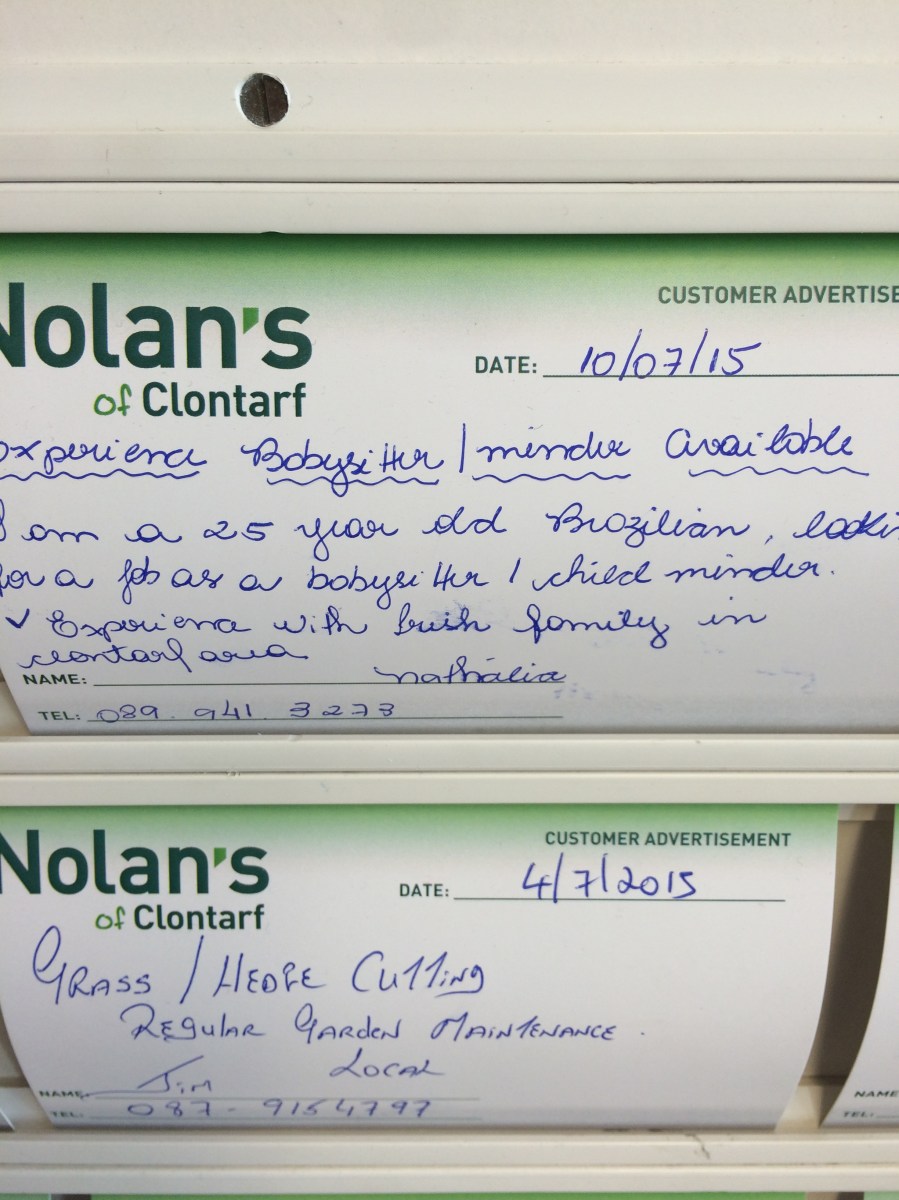 Nolan's
of Clontarf
CUSTOMER ADVERTISE
DATE: 10/07/15
Experience Babysitter / minder available
I am a 25 year old Brazilian, lookin
for a job as a babysitter / child minder.
✓ Experience with Irish family in
clontarf area
NAME: nathália
TEL: 089. 941. 3273
Nolan's
of Clontarf
CUSTOMER ADVERTISEMENT
DATE: 4/7/2015
GRASS / HEDGE CUTTING
REGULAR GARDEN MAINTENANCE.
LOCAL
NAME: JIM
TEL: 087-9154797
NAME
TEL: